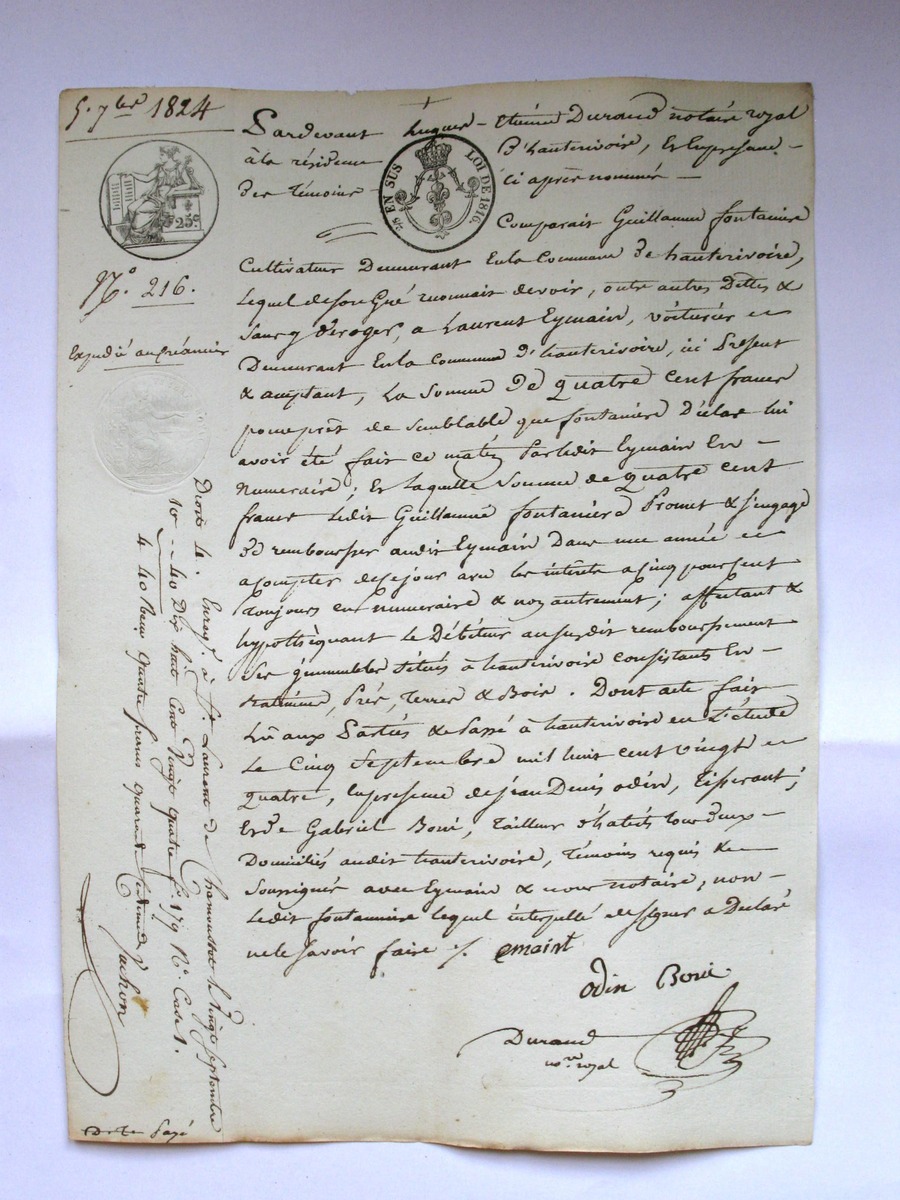 5. 7bre 1824
25c
N.° 216.
Expédié au créancier
Pardevant hugues - etienne Durand notaire royal
à la résidence D'hauterivoire, & En presence -
des témoins - ci après nommés -
25c EN SUS LOI DE 1816.
Comparait Guillaume fontaniere
Cultivateur Demeurant En la Commune de hauterivoire,
lequel de son Gré reconnait devoir, outre autres Dettes &
sans y déroger, a Laurent Eymain, Voiturier &
Demeurant En la Commune d'hauterivoire, ici Présent
& acceptant, La Somme De quatre cent francs
pour prêt de semblable que fontaniere Déclare lui
avoir été fait ce matin Par ledit Eymain En -
Numeraire; & laquelle Somme de quatre cent
francs Ledit Guillaume fontaniere Promet & s'engage
de rembourser audit Eymain Dans une année &
a compter de ce jour avec les intérêts a cinq pour cent
toujours en numeraire & non autrement; affectant &
hypothèquant Le Débiteur au susdit remboursement
Ses immeubles situés à hauterivoire consistants En -
Batiments, Prés, terres & Bois. Dont acte fait
Lu aux Parties & Passé à hauterivoire en L'étude
Le Cinq Septembre mil huit cent vingt &
quatre, En presence de jean Denis odin, Tisserant;
Et de Gabriel Boni, Tailleur d'habits tous deux -
Domiciliés audit hauterivoire, témoins requis &
Soussignés avec Eymain & nous notaire, non -
Ledit fontanniere lequel interpellé de signer a Déclaré
ne le Savoir faire ./.
emaint
odin Boni
Durand
nore royal
Droits 4. Enregé à St. Laurent de Chamousset le vingt Septembre
10 -- 40 Dix huit Cent Vingt quatre fo. 179 Ro. Case 1.
4 40 Reçu quatre francs quarante centimes
Vachon